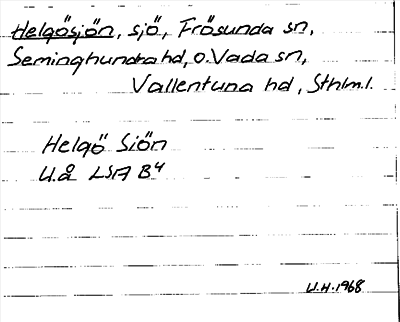 Helgösjön, sjö, Frösunda sn,
Seminghundra hd, o. Vada sn,
Vallentuna hd, Sthlm.l.
Helgö Siön
U.å LSA B4
U.H. 1968